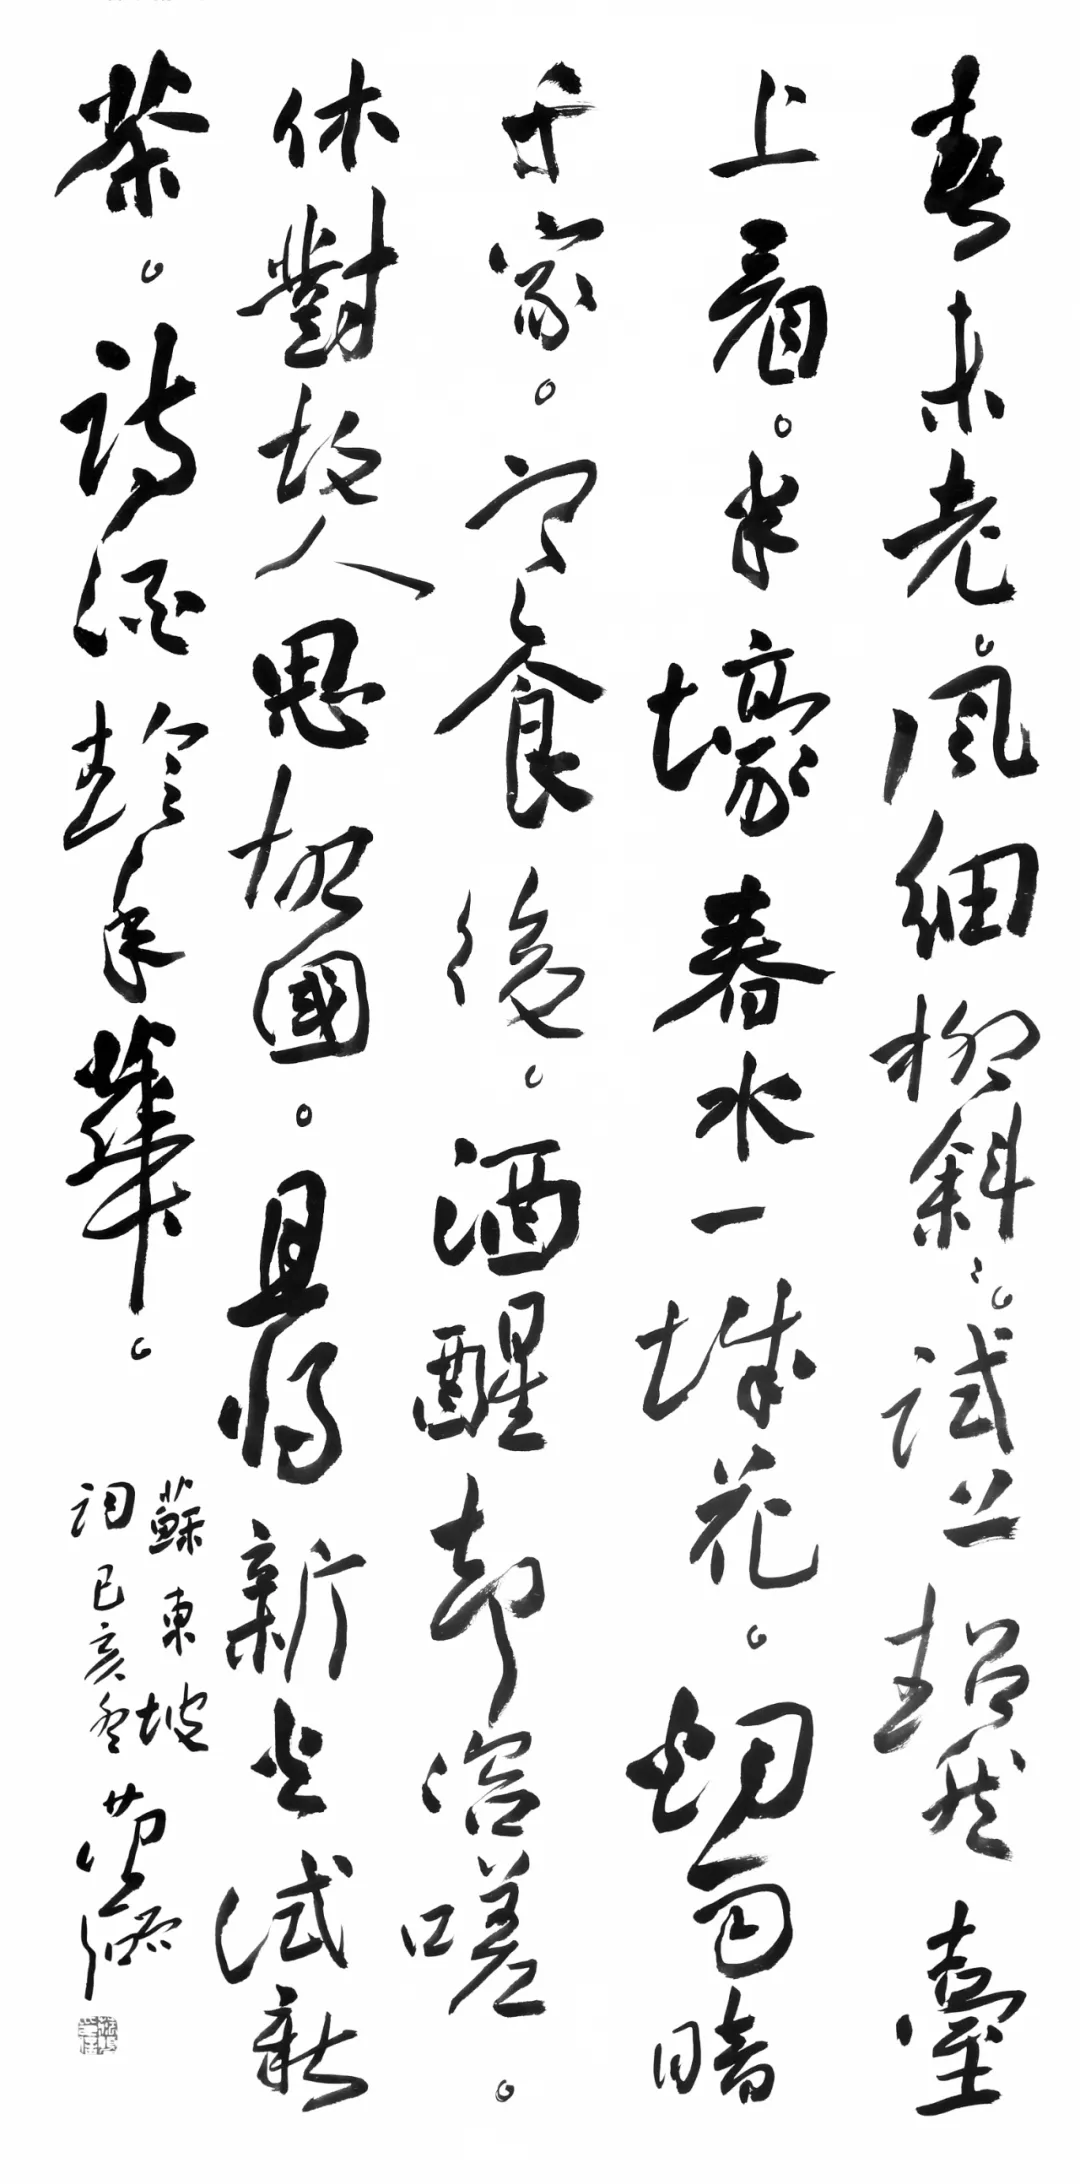 春未老。風細柳斜〻。試上超然臺
上看。半壕春水一城花。煙雨暗
千家。寒食後。酒醒却咨嗟。
休對故人思故國。且將新火試新
茶。詩酒趁年華。
蘇東坡
詞己亥冬